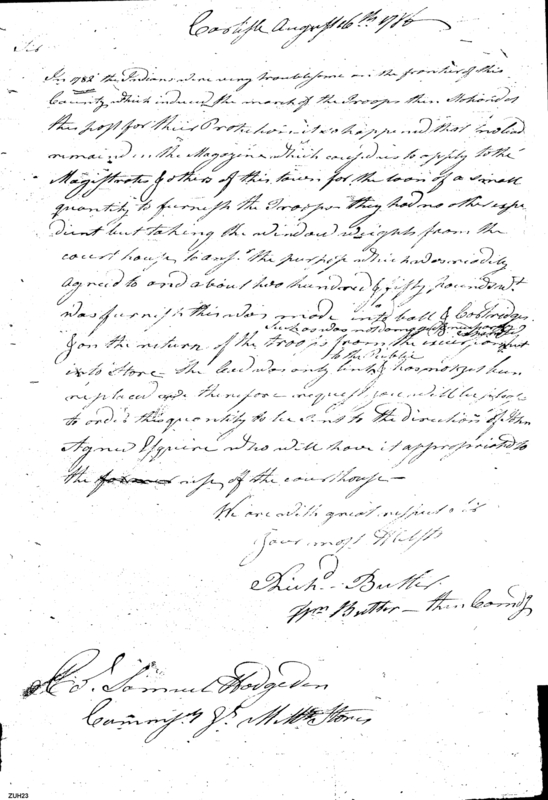 Carlisle August 16th 1786
Sir
In 1782 the Indians were very troublesome on the frontier of this
County which induced the march of the Troops then Stationed at
this post for their Protection, it so happened that no lead
remained in the Magazine which caused us to apply to the
Magistrate & others of this town for the loan of a small
quantity to furnish the Troops they had no other expe
dient but taking the window weights from the
court house to answr. the purpose which was readily
agreed to and about two hundred & fifty Pounds wt.
was furnish this was made into ball & Cartridges
& on the return of the troops from the
such as was not
into Store the lead was only lent & has not yet been
to the Public
replaced we therefore request you will be please
to order this quantity to be sent to the direction of
Agnew Esquire who will have it appropriated to
the former use of the courthouse —
We are with great respect sir
your most Hble Sts
Richd. Butler
Wm Butler — then Comdg
Col. Samuel Hodgdon
Commisy Gl. Mily Stores
ZUH23